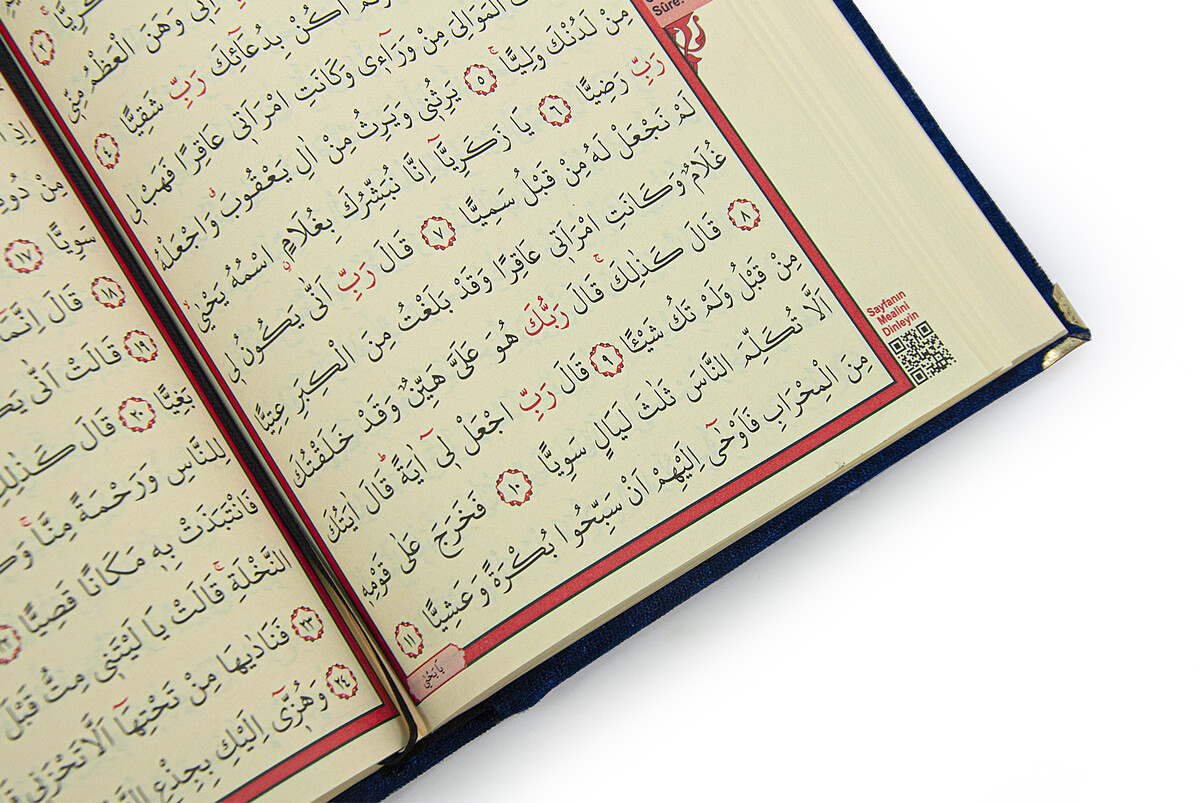 Sûre:
اِنّٖى وَهَنَ الْعَظْمُ مِنّٖى
اَكُنْ بِدُعَٓائِكَ رَبِّ شَقِيًّا ﴿٤﴾
الْمَوَالِىَ مِنْ وَرَٓاءٖى وَكَانَتِ امْرَاَتٖى عَاقِرًا فَهَبْ لٖى
مِنْ لَدُنْكَ وَلِيًّاۙ ﴿٥﴾ يَرِثُنٖى وَيَرِثُ مِنْ اٰلِ يَعْقُوبَۗ وَاجْعَلْهُ
رَبِّ رَضِيًّا ﴿٦﴾ يَا زَكَرِيَّٓا اِنَّا نُبَشِّرُكَ بِغُلَامٍۨ اسْمُهُ يَحْيٰىۙ
لَمْ نَجْعَلْ لَهُ مِنْ قَبْلُ سَمِيًّا ﴿٧﴾ قَالَ رَبِّ اَنّٰى يَكُونُ لٖى
غُلَامٌ وَكَانَتِ امْرَاَتٖى عَاقِرًا وَقَدْ بَلَغْتُ مِنَ الْكِبَرِ عِتِيًّا
﴿٨﴾ قَالَ كَذٰلِكَۚ قَالَ رَبُّكَ هُوَ عَلَىَّ هَيِّنٌ وَقَدْ خَلَقْتُكَ
مِنْ قَبْلُ وَلَمْ تَكُ شَيْئًا ﴿٩﴾ قَالَ رَبِّ اجْعَلْ لٖٓى اٰيَةًۜ قَالَ اٰيَتُكَ
اَلَّا تُكَلِّمَ النَّاسَ ثَلٰثَ لَيَالٍ سَوِيًّا ﴿١٠﴾ فَخَرَجَ عَلٰى قَوْمِهٖ
مِنَ الْمِحْرَابِ فَاَوْحٰٓى اِلَيْهِمْ اَنْ سَبِّحُوا بُكْرَةً وَعَشِيًّا ﴿١١﴾
يَا يَحْيٰى
Sayfanın
Mealini
Dinleyin
سَوِيًّا ﴿١٧﴾
﴿١٨﴾ قَالَ اِنَّمَٓا
﴿١٩﴾ قَالَتْ اَنّٰى
بَغِيًّا ﴿٢٠﴾ قَالَ كَذٰلِكِ
لِلنَّاسِ وَرَحْمَةً مِنَّاۚ
فَانْتَبَذَتْ بِهٖ مَكَانًا قَصِيًّا ﴿٢٢﴾
النَّخْلَةِۚ قَالَتْ يَا لَيْتَنٖى مِتُّ قَبْلَ
﴿٢٣﴾ فَنَادٰيهَا مِنْ تَحْتِهَٓا اَلَّا تَحْزَنٖى
﴿٢٤﴾ وَهُزّٖٓى اِلَيْكِ بِجِذْعِ